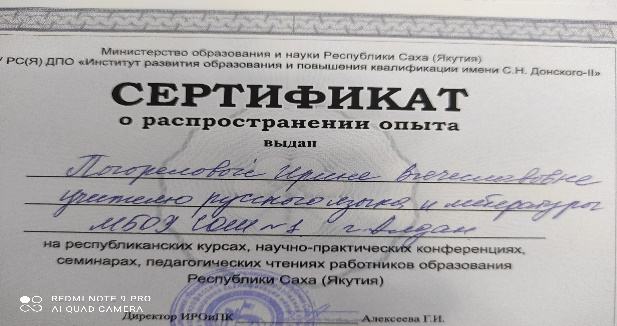 Министерство образования и науки Республики Саха (Якутия)
У РС(Я) ДПО «Институт развития образования и повышения квалификации имени С.Н. Донского-II»
СЕРТИФИКАТ
о распространении опыта
выдан
Погореловой Ирине Вячеславовне
учителю русского языка и литературы
МБОУ СОШ №1 г. Алдан
на республиканских курсах, научно-практических конференциях,
семинарах, педагогических чтениях работников образования
Республики Саха (Якутия)
Директор ИРОиПК Алексеева Г.И.
REDMI NOTE 9 PRO
AI QUAD CAMERA